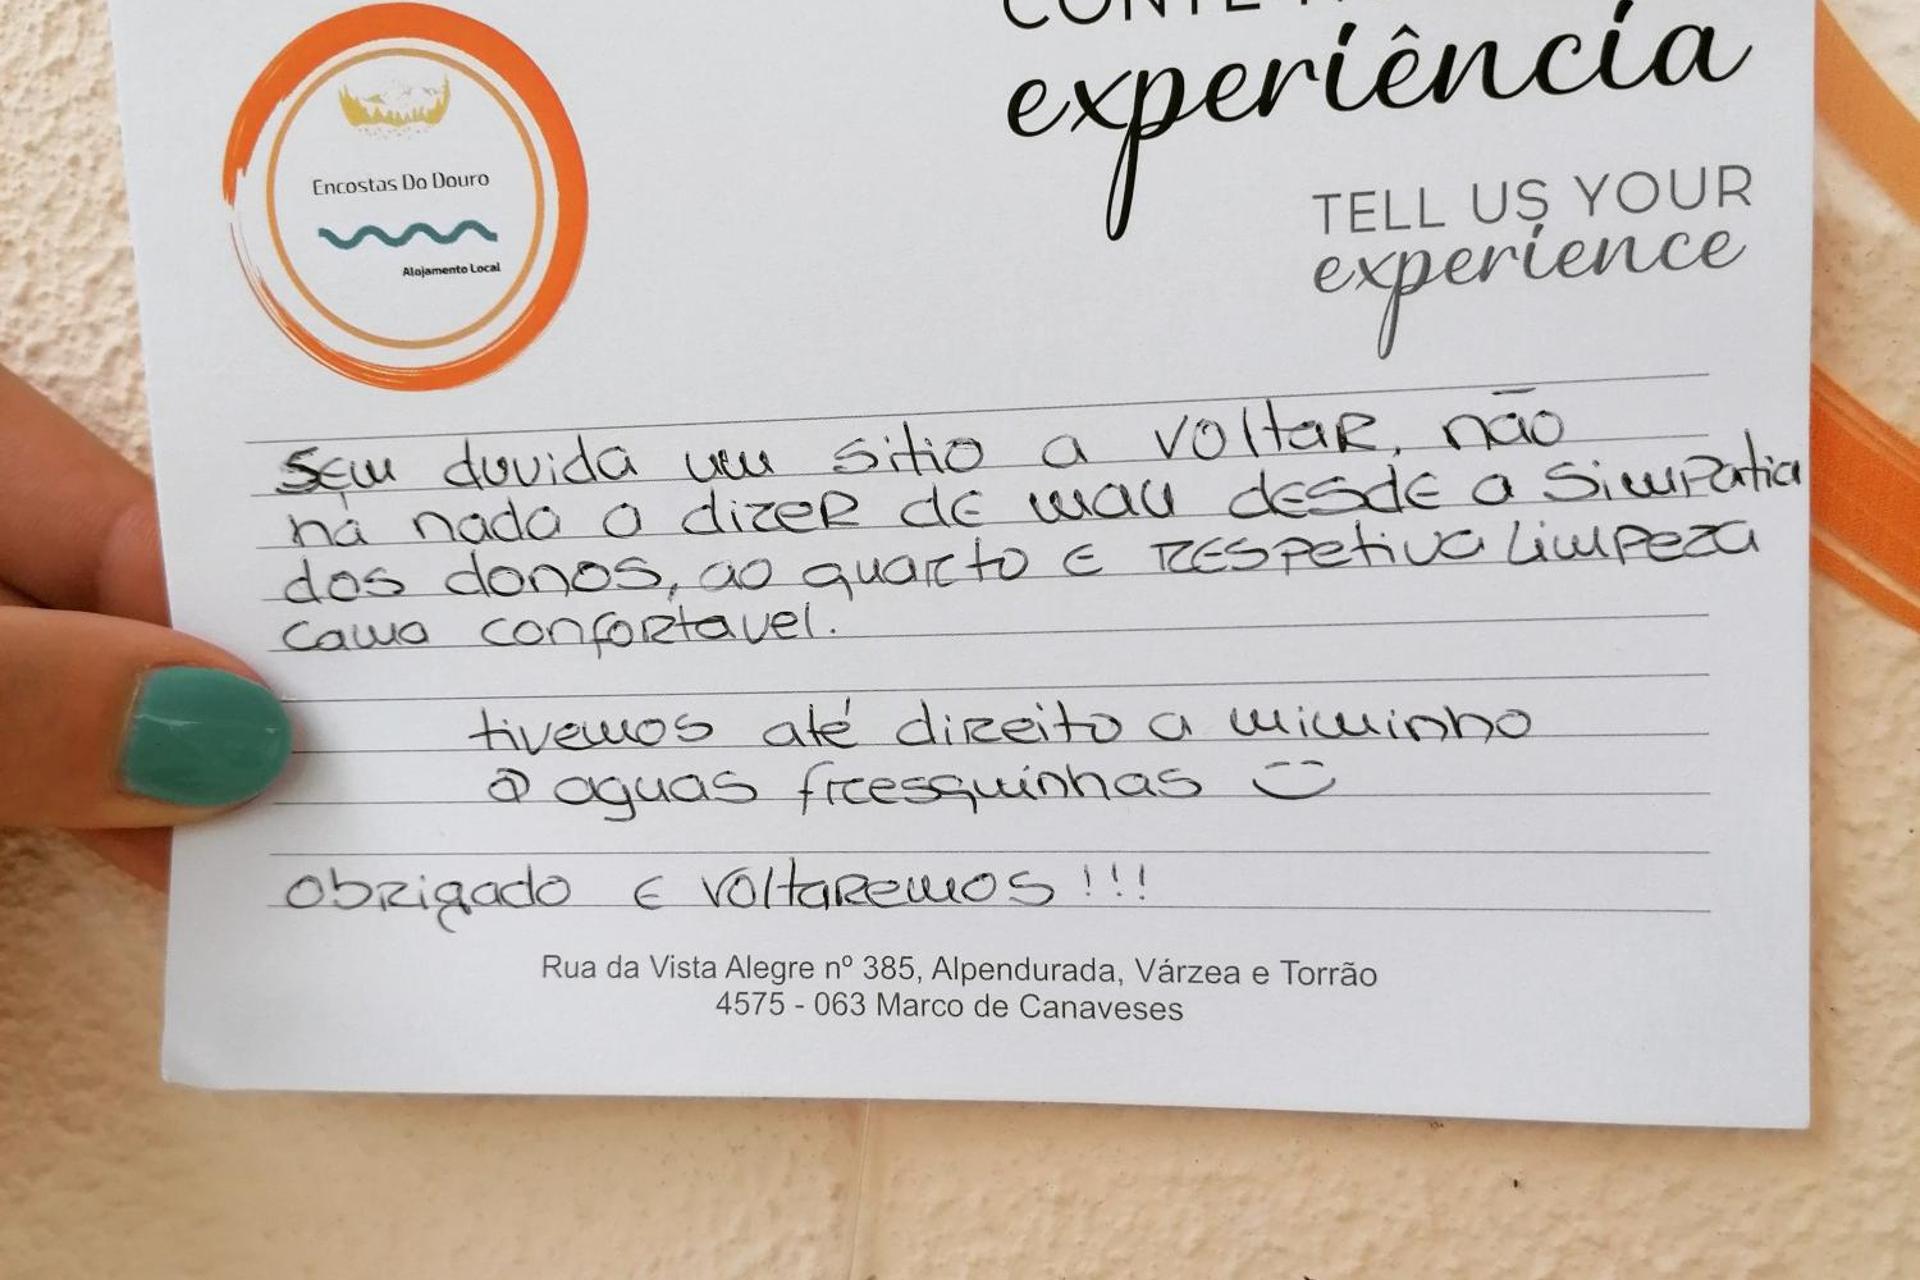 Encostas Do Douro
Alojamento Local
experiência
TELL US YOUR
experience
Sem duvida um sitio a voltar, não
há nada a dizer de mau desde a simpatia
dos donos, ao quarto e respetiva limpeza
cama confortavel.
tivemos até direito a miminho
aguas fresquinhas
obrigado e voltaremos!!!
Rua da Vista Alegre nº 385, Alpendurada, Várzea e Torrão
4575 - 063 Marco de Canaveses